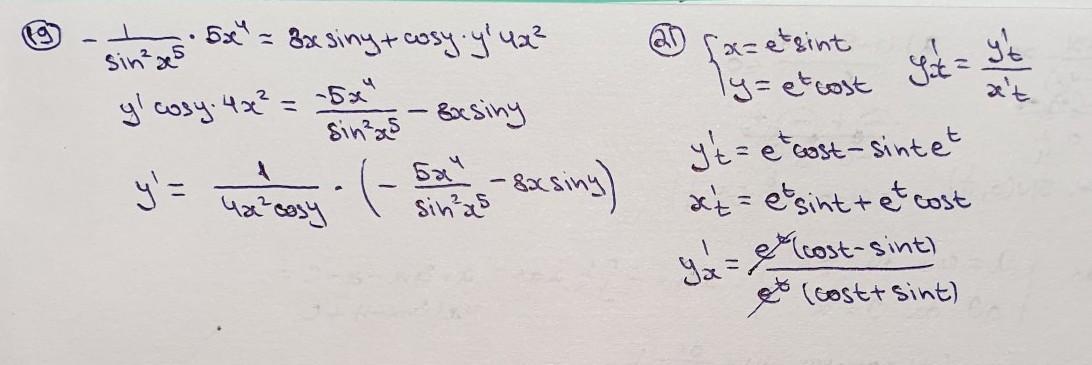 19) - 1/sin²x⁵ · 5x⁴ = 8x siny + cosy · y' 4x²
y' cosy · 4x² = -5x⁴/sin²x⁵ - 8x siny
y' = 1/4x²cosy · (- 5x⁴/sin²x⁵ - 8x siny)
21) { x = eᵗ sint
y = eᵗ cost
y'ₓ = y'ₜ/x'ₜ
y'ₜ = eᵗ cost - sint eᵗ
x'ₜ = eᵗ sint + eᵗ cost
y'ₓ = eᵗ (cost - sint)/eᵗ (cost + sint)